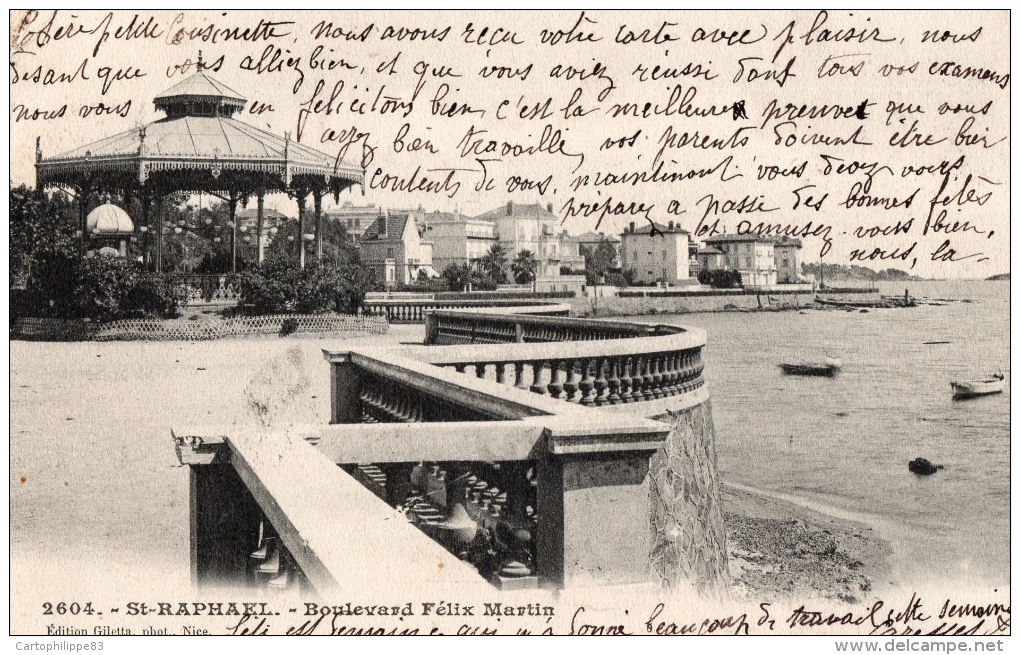 Chère petite Cousinette, nous avons reçu votre carte avec plaisir, nous
disant que vous alliez bien, et que vous aviez réussi dans tous vos examens
nous vous en felicitons bien, c'est la meilleure preuve que vous
avez bien travaillé, vos parents doivent être bien
contents de vous, maintenant vous devez vous
preparez a passe des bonnes fêtes
et amusez-vous bien,
nous, la
2604. - St-RAPHAËL. - Boulevard Félix Martin
Édition Giletta, phot., Nice.
semaine qui a donne beaucoup de travail cette semaine
Cartophilippe83
www.delcampe.net